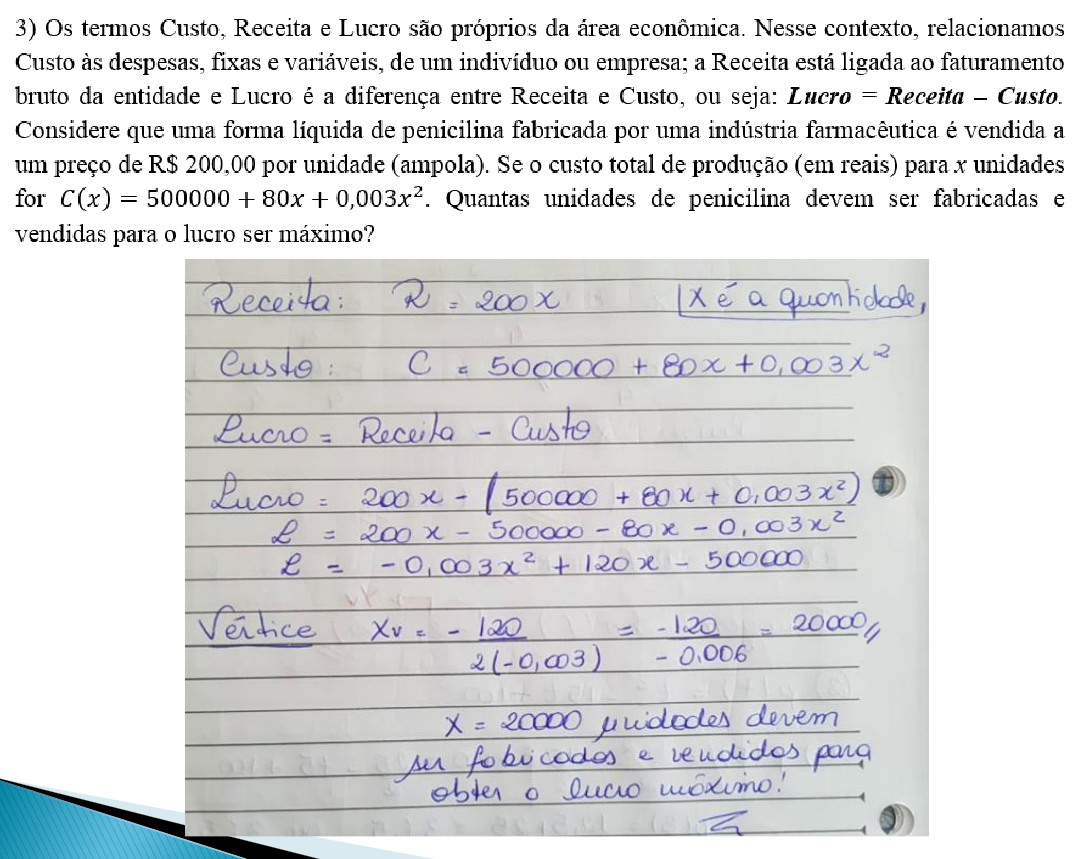 3) Os termos Custo, Receita e Lucro são próprios da área econômica. Nesse contexto, relacionamos
Custo às despesas, fixas e variáveis, de um indivíduo ou empresa; a Receita está ligada ao faturamento
bruto da entidade e Lucro é a diferença entre Receita e Custo, ou seja: Lucro = Receita – Custo.
Considere que uma forma líquida de penicilina fabricada por uma indústria farmacêutica é vendida a
um preço de R$ 200,00 por unidade (ampola). Se o custo total de produção (em reais) para x unidades
for C(x) = 500000 + 80x + 0,003x². Quantas unidades de penicilina devem ser fabricadas e
vendidas para o lucro ser máximo?
Receita: R = 200x x é a quantidade,
Custo: C = 500000 + 80x + 0,003x²
Lucro = Receita - Custo
Lucro = 200x - (500000 + 80x + 0,003x²)
L = 200x - 500000 - 80x - 0,003x²
L = -0,003x² + 120x - 500000
Vértice Xv = - 120 / 2(-0,003) = -120 / -0.006 = 20000//
X = 20000 unidades devem
ser fabricados e vendidos para
obter o lucro máximo!